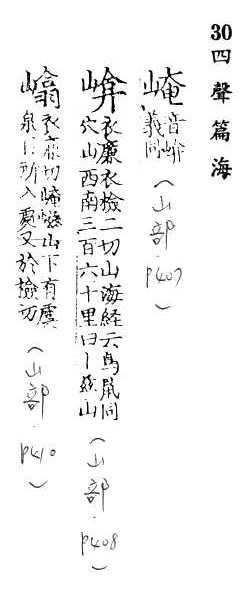 30 四聲篇海
崦 音
義同 (山部·p407)
衣廉衣檢二切山海経云鳥鼠同
穴山西南三百六十里曰丨嵫山 (山部·p408)
衣廉切崦嵫山下有虞
泉日所入處又於撿切 (山部·p410)